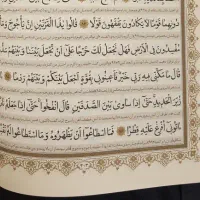 دُونِهِمَا قَوْمًا لَّا يَكَادُونَ يَفْقَهُونَ قَوْلًا ۝ قَالُوا۟ يَٰذَا ٱلْقَرْنَيْنِ إِنَّ يَأْجُوجَ
مُفْسِدُونَ فِى ٱلْأَرْضِ فَهَلْ نَجْعَلُ لَكَ خَرْجًا عَلَىٰٓ أَن تَجْعَلَ بَيْنَنَا وَبَيْنَهُمْ
قَالَ مَا مَكَّنِّى فِيهِ رَبِّى خَيْرٌ فَأَعِينُونِى بِقُوَّةٍ أَجْعَلْ بَيْنَكُمْ وَبَيْنَهُمْ رَدْمًا
زُبَرَ ٱلْحَدِيدِ حَتَّىٰٓ إِذَا سَاوَىٰ بَيْنَ ٱلصَّدَفَيْنِ قَالَ ٱنفُخُوا۟ حَتَّىٰٓ إِذَا جَعَلَهُۥ
ءَاتُونِىٓ أُفْرِغْ عَلَيْهِ قِطْرًا ۝ فَمَا ٱسْطَٰعُوٓا۟ أَن يَظْهَرُوهُ وَمَا ٱسْتَطَٰعُوا۟ لَهُۥ